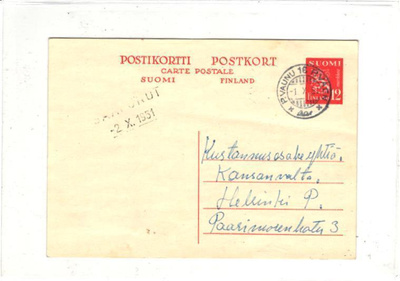 POSTIKORTTI POSTKORT
CARTE POSTALE
SUOMI FINLAND
SUOMI
12
P.VAUNU 16
2. X. 1951
Kustannusosakeyhtiö,
Kansanvalta,
Helsinki P.
Paasivuorenkatu 3